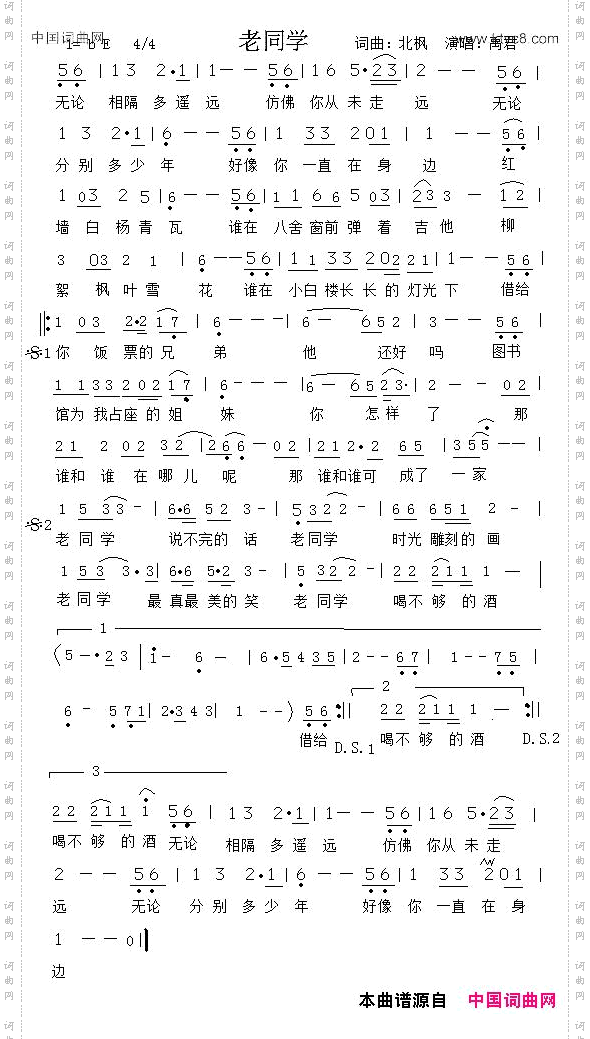 中国词曲网
1= b E 4/4
老同学
词曲：北枫 演唱：
5 6 | 1 3 2·1 | 1 — — 5 6 | 1 6 5·2 3 | 2 — — 5 6 |
无论 相隔 多遥 远 仿佛 你从 未走 远 无论
1 3 2·1 | 6 — — 5 6 | 1 3 3 2 0 1 | 1 — — 5 6 |
分别 多少 年 好像 你 一直 在 身 边 红
1 0 3 2 5 | 6 — — 5 6 | 1 1 6 6 5 0 3 | 2 3 3 — 1 2 |
墙 白 杨 青 瓦 谁在 八舍 窗前 弹 着 吉 他 柳
3 0 3 2 1 | 6 — — 5 6 | 1 1 3 3 2 0 2 2 1 | 1 — — 5 6 |
絮 枫 叶 雪 花 谁在 小白 楼长 长的 灯光 下 借给
1 0 3 2·2 1 7 | 6 — — — | 6 — 6 5 2 | 3 — — 5 6 |
𝄋1 你 饭 票的 兄 弟 他 还好 吗 图书
1 1 3 3 2 0 2 1 7 | 6 — — — | 6 — 6 5 2 3· | 2 — — 0 2 |
馆为 我占 座 的 姐 妹 你 怎 样 了 那
2 1 2 0 2 3 2 | 2 6 6 — 0 2 | 2 1 2·2 6 5 | 3 5 5 — — |
谁和 谁 在 哪 儿 呢 那 谁和谁可 成了 一家
1 5 3 3 — | 6·6 5 2 3 — | 5 3 2 2 — | 6 6 6 5 1 2 — |
𝄋2
老 同 学 说不完的 话 老同学 时光 雕刻的 画
1 5 3 3·3 | 6·6 5·2 3 — | 5 3 2 2 — | 2 2 2 1 1 1 — |
老 同 学 最 真最 美的 笑 老 同学 喝不 够 的 酒
1
〈 5 — ·2 3 | 1 — 6 — | 6·5 4 3 5 | 2 — — 6 7 | 1 — — 7 5 |
6 — 5 7 1 | 2·3 4 3 | 1 — — 〉 5 6 :||
借给
D.S.1
2
2 2 2 1 1 1 — :||
喝不 够 的 酒
D.S.2
3
2 2 2 1 1 1 5 6 | 1 3 2·1 | 1 — — 5 6 | 1 6 5·2 3 |
喝不 够 的酒 无论 相隔 多 遥 远 仿佛 你从 未走
2 — — 5 6 | 1 3 2·1 | 6 — — 5 6 | 1 3 3 2 0 1 |
远 无论 分 别 多 少 年 好像 你 一直 在 身
1 — — 0 ||
边
本曲谱源自 中国词曲网